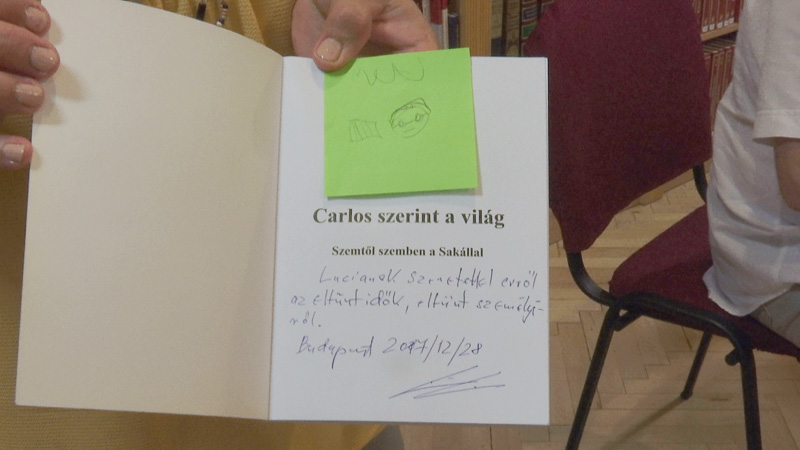 Carlos szerint a világ
Szemtől szemben a Sakállal
Lucianak szeretettel erről
az eltűnt idők, eltűnt személyi-
ről.
Budapest 2017/12/28